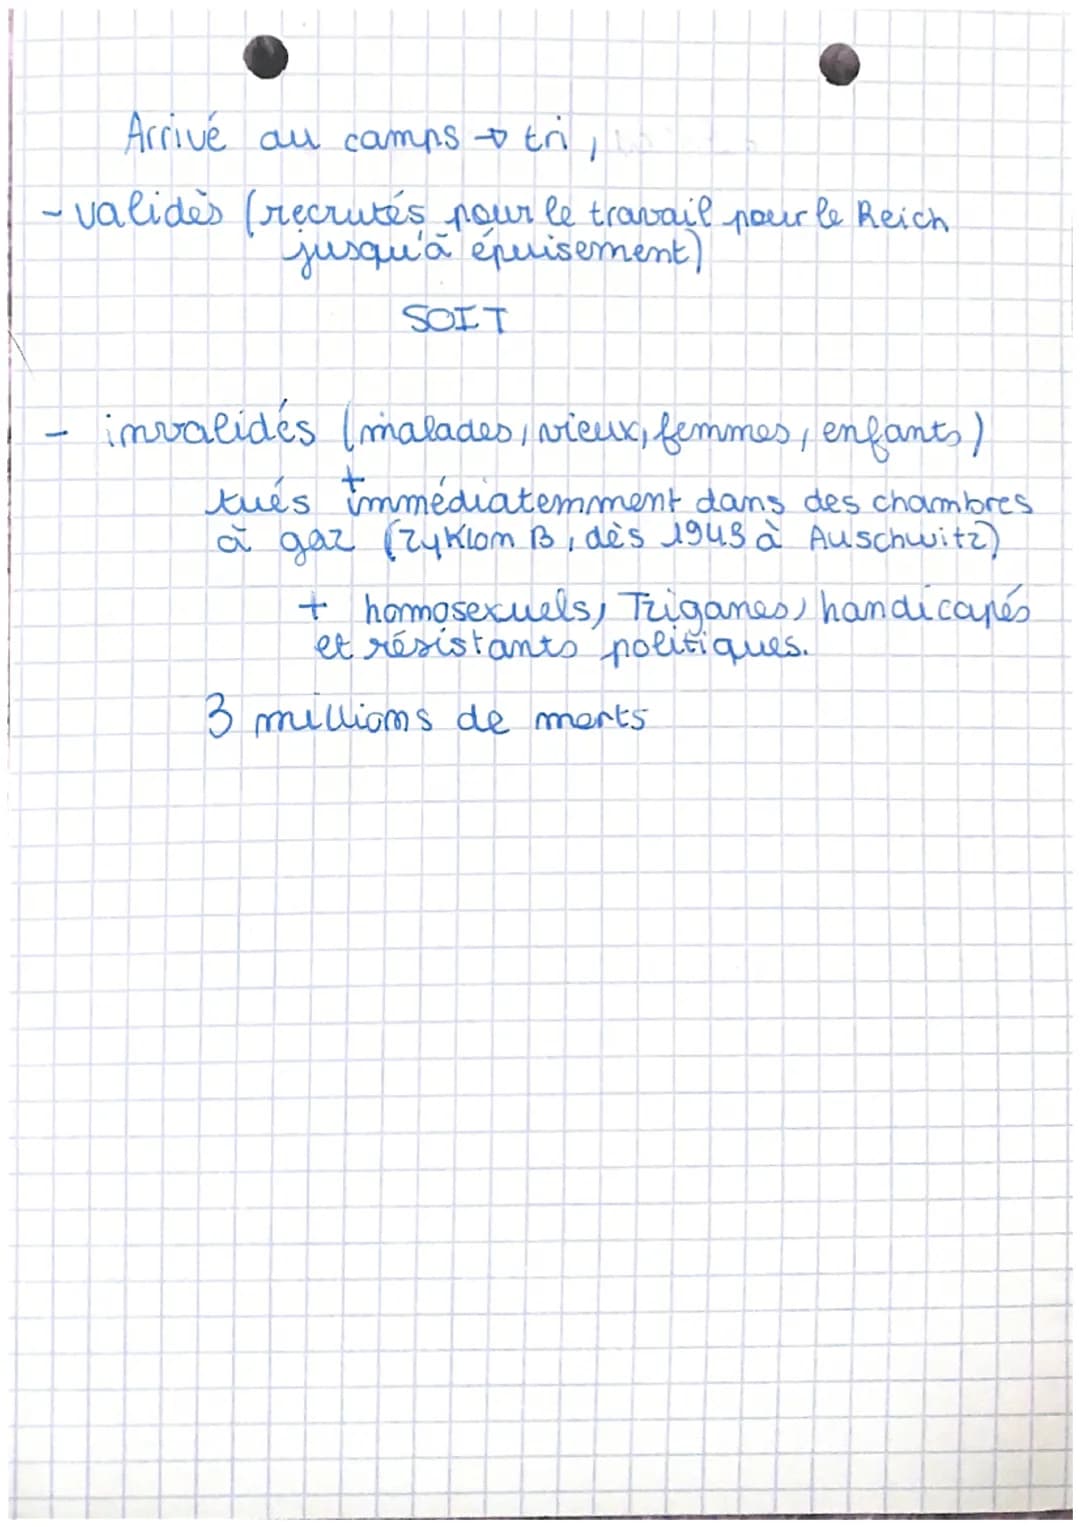 Arrivé au camps → tri,
- validès (recrutés pour le travail pour le Reich
jusqu'à épuisement)
SOIT
- invalidés (malades, vieux, femmes, enfants)
+
tués immédiatemment dans des chambres
à gaz (ZyKlom B, dès 1943 à Auschwitz)
+ homosexuels, Tziganes, handicapés
et résistants politiques.
3 millions de morts